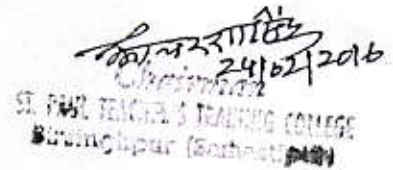 24/02/2016
Chairman
ST. PAUL TEACHER'S TRAINING COLLEGE
Birsinghpur (Samastipur)